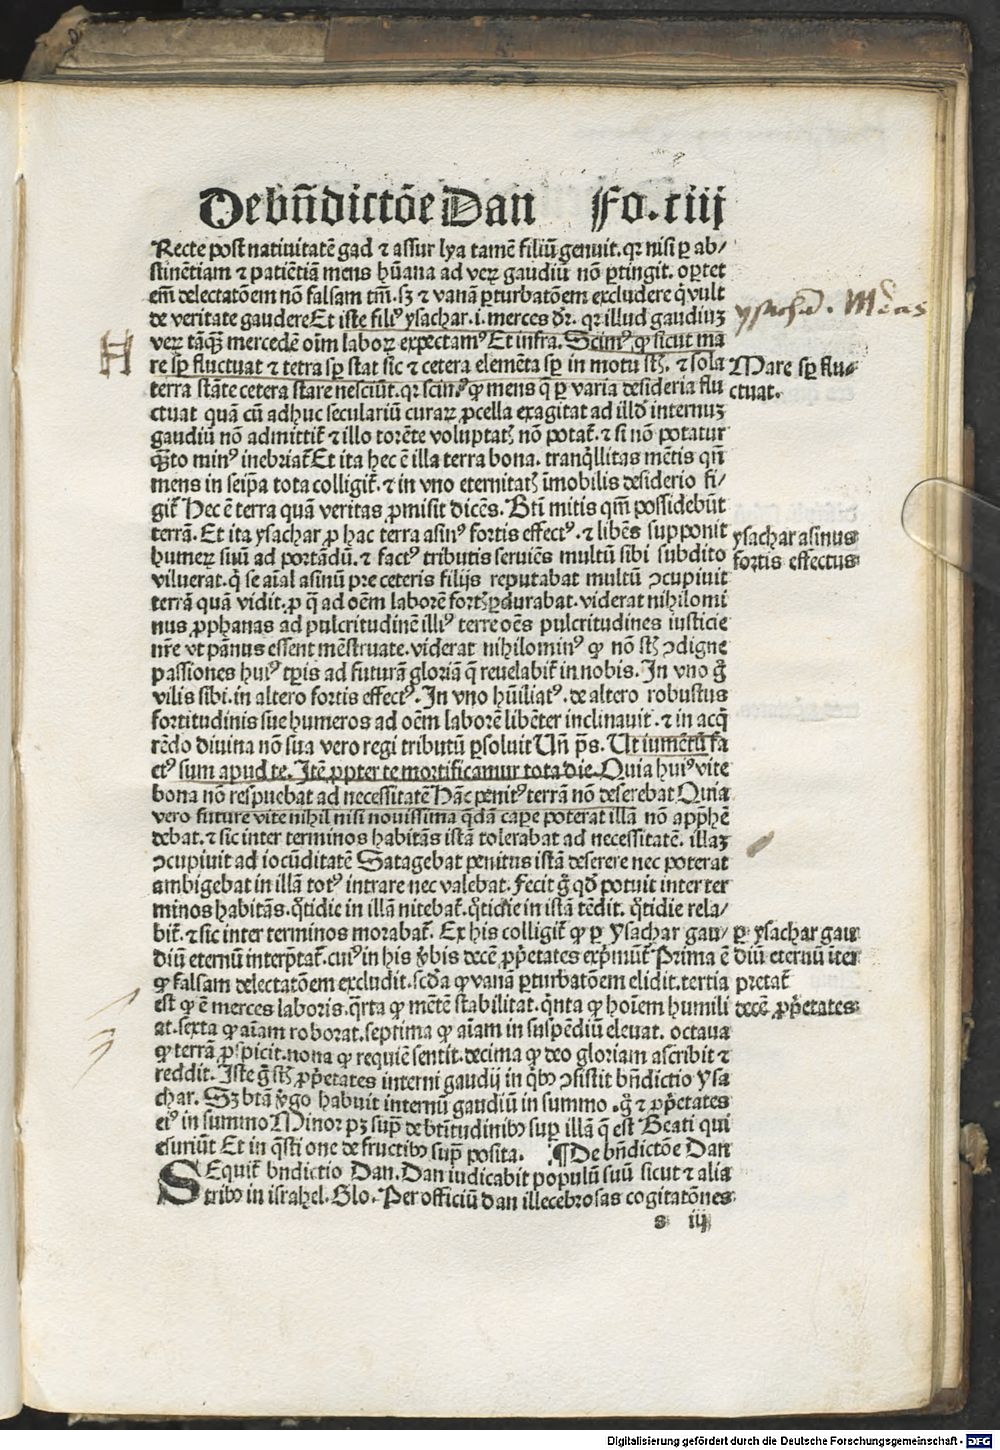 De bñdictōe Dan Fo. ciij
Recte post natiuitatē gad ⁊ assur lya tamē filiū genuit. qꝛ nisi ꝑ ab/
stinētiam ⁊ patiētiā mens hūana ad veꝝ gaudiū nō ꝑtingit. oꝑtet
em̄ delectatōem nō falsam tm̄. sꝫ ⁊ vanā ꝑturbatōem excludere q̇ vult
de veritate gaudere Et iste filiꝰ ysachar .i. merces dr̄. qꝛ illud gaudiuꝫ
veꝝ tāqꝫ mercedē oīm laboꝝ expectamꝰ Et infra. Scimꝰ ꝙ sicut ma
re sꝑ fluctuat ⁊ tetra sꝑ stat sic ⁊ cetera elemēta sꝑ in motu st̄. ⁊ sola
terra stāte cetera stare nesciūt. qꝛ scimꝰ ꝙ mens q̄ ꝑ varia desideria flu
ctuat quā cū adhuc seculariū curaꝝ ꝓcella exagitat ad illd̄ internuꝫ
gaudiū nō admittit̄ ⁊ illo torēte voluptat̄ nō potat̄. ⁊ si nō potatur
qꝫto minꝰ inebriat̄ Et ita hec ē illa terra bona. tranq̇llitas mētis qn̄
mens in seip̄a tota colligit̄. ⁊ in vno eternitat̄ īmobilis desiderio fi/
git̄ Hec ē terra quā veritas ꝓmisit dicēs. Bt̄i mitis qm̄ possidebūt
terrā. Et ita ysachar ꝓ hac terra asinꝰ fortis effectꝰ. ⁊ libēs supponit
humeꝝ suū ad portādū. ⁊ factꝰ tributis seruiēs multū sibi subdito
viluerat. q̇ se aīal asinū pre ceteris filijs reputabat multū ↄcupiuit
terrā quā vidit. ꝓ q̄ ad oēm laborē fort̄ ꝑdurabat. viderat nihilomi
nus ꝓphanas ad pulcritudinē illiꝰ terre oēs pulcritudines iusticie
nr̄e vt pānus essent mēstruate. viderat nihilominꝰ ꝙ nō st̄ ↄdigne
passiones huiꝰ tꝑis ad futurā gloriā q̄ reuelabit̄ in nobis. In vno g̊
vilis sibi. in altero fortis effectꝰ. In vno hūiliatꝰ. de altero robustus
fortitudinis sue humeros ad oēm laborē libēter inclinauit. ⁊ in acq̇
rēdo diuina nō sua vero regi tributū ꝑsoluit Un̄ p̄s. Ut iumētū fa
ctꝰ sum apud te. Itē ꝓpter te mortificamur tota die. Quia huiꝰ vite
bona nō respuebat ad necessitatē Hāc penitꝰ terrā nō deserebat Quia
vero future vite nihil nisi nouissima q̄dā caꝑe poterat illā nō appn̄he
debat. ⁊ sic inter terminos habitās istā tolerabat ad necessitatē. illaꝫ
ↄcupiuit ad iocūditatē Satagebat penitus istā deserere nec poterat
ambigebat in illā totꝰ intrare nec valebat. Fecit g̊ qd̄ potuit inter ter
minos habitās. q̊tidie in illā nitebat̄. q̊tidie in istā tēdit. q̊tidie rela/
bit̄. ⁊ sic inter terminos morabat̄. Ex his colligit̄ ꝙ ꝑ Ysachar gau/
diū eternū interp̄tat̄. cuiꝰ in his v̊bis decē ꝓp̄etates exp̄mūt̄ Prima ē
ꝙ falsam delectatōem excludit. scd̄a ꝙ vanā ꝑturbatōem elidit. tertia
est ꝙ ē merces laboris. q̄rta ꝙ mētē stabilitat. q̇nta ꝙ hoīem humili
at. sexta ꝙ aīam roborat. septima ꝙ aīam in suspēdiū eleuat. octaua
ꝙ terrā ꝓspicit. nona ꝙ requiē sentit. decima ꝙ deo gloriam ascribit ⁊
reddit. Iste g̊ st̄ ꝓp̄etates interni gaudij in q̇bꝰ ↄsistit bn̄dictio Ysa
char. Sꝫ bt̄a v̊go habuit internū gaudiū in summo .g̊ ⁊ ꝓp̄etates
eiꝰ in summo Minor pꝫ supͣ de bt̄itudinibꝰ suꝑ illā q̄ est Beati qui
esuriūt Et in q̄stione de fructibꝰ supͣ posita. ¶ De bn̄dictōe Dan
SEquit̄ bn̄dictio Dan. Dan iudicabit populū suū sicut ⁊ alia
tribꝰ in israhel. Glo. Per officiū dan illecebrosas cogitatōnes
s iij
ysachar. Mercas
Mare sꝑ flu-
ctuat.
ysachar asinus
fortis effectus
ꝑ ysachar gau
diū eternū īter
pretat̄
decē ꝓp̄etates
Digitalisierung gefördert durch die Deutsche Forschungsgemeinschaft - DFG